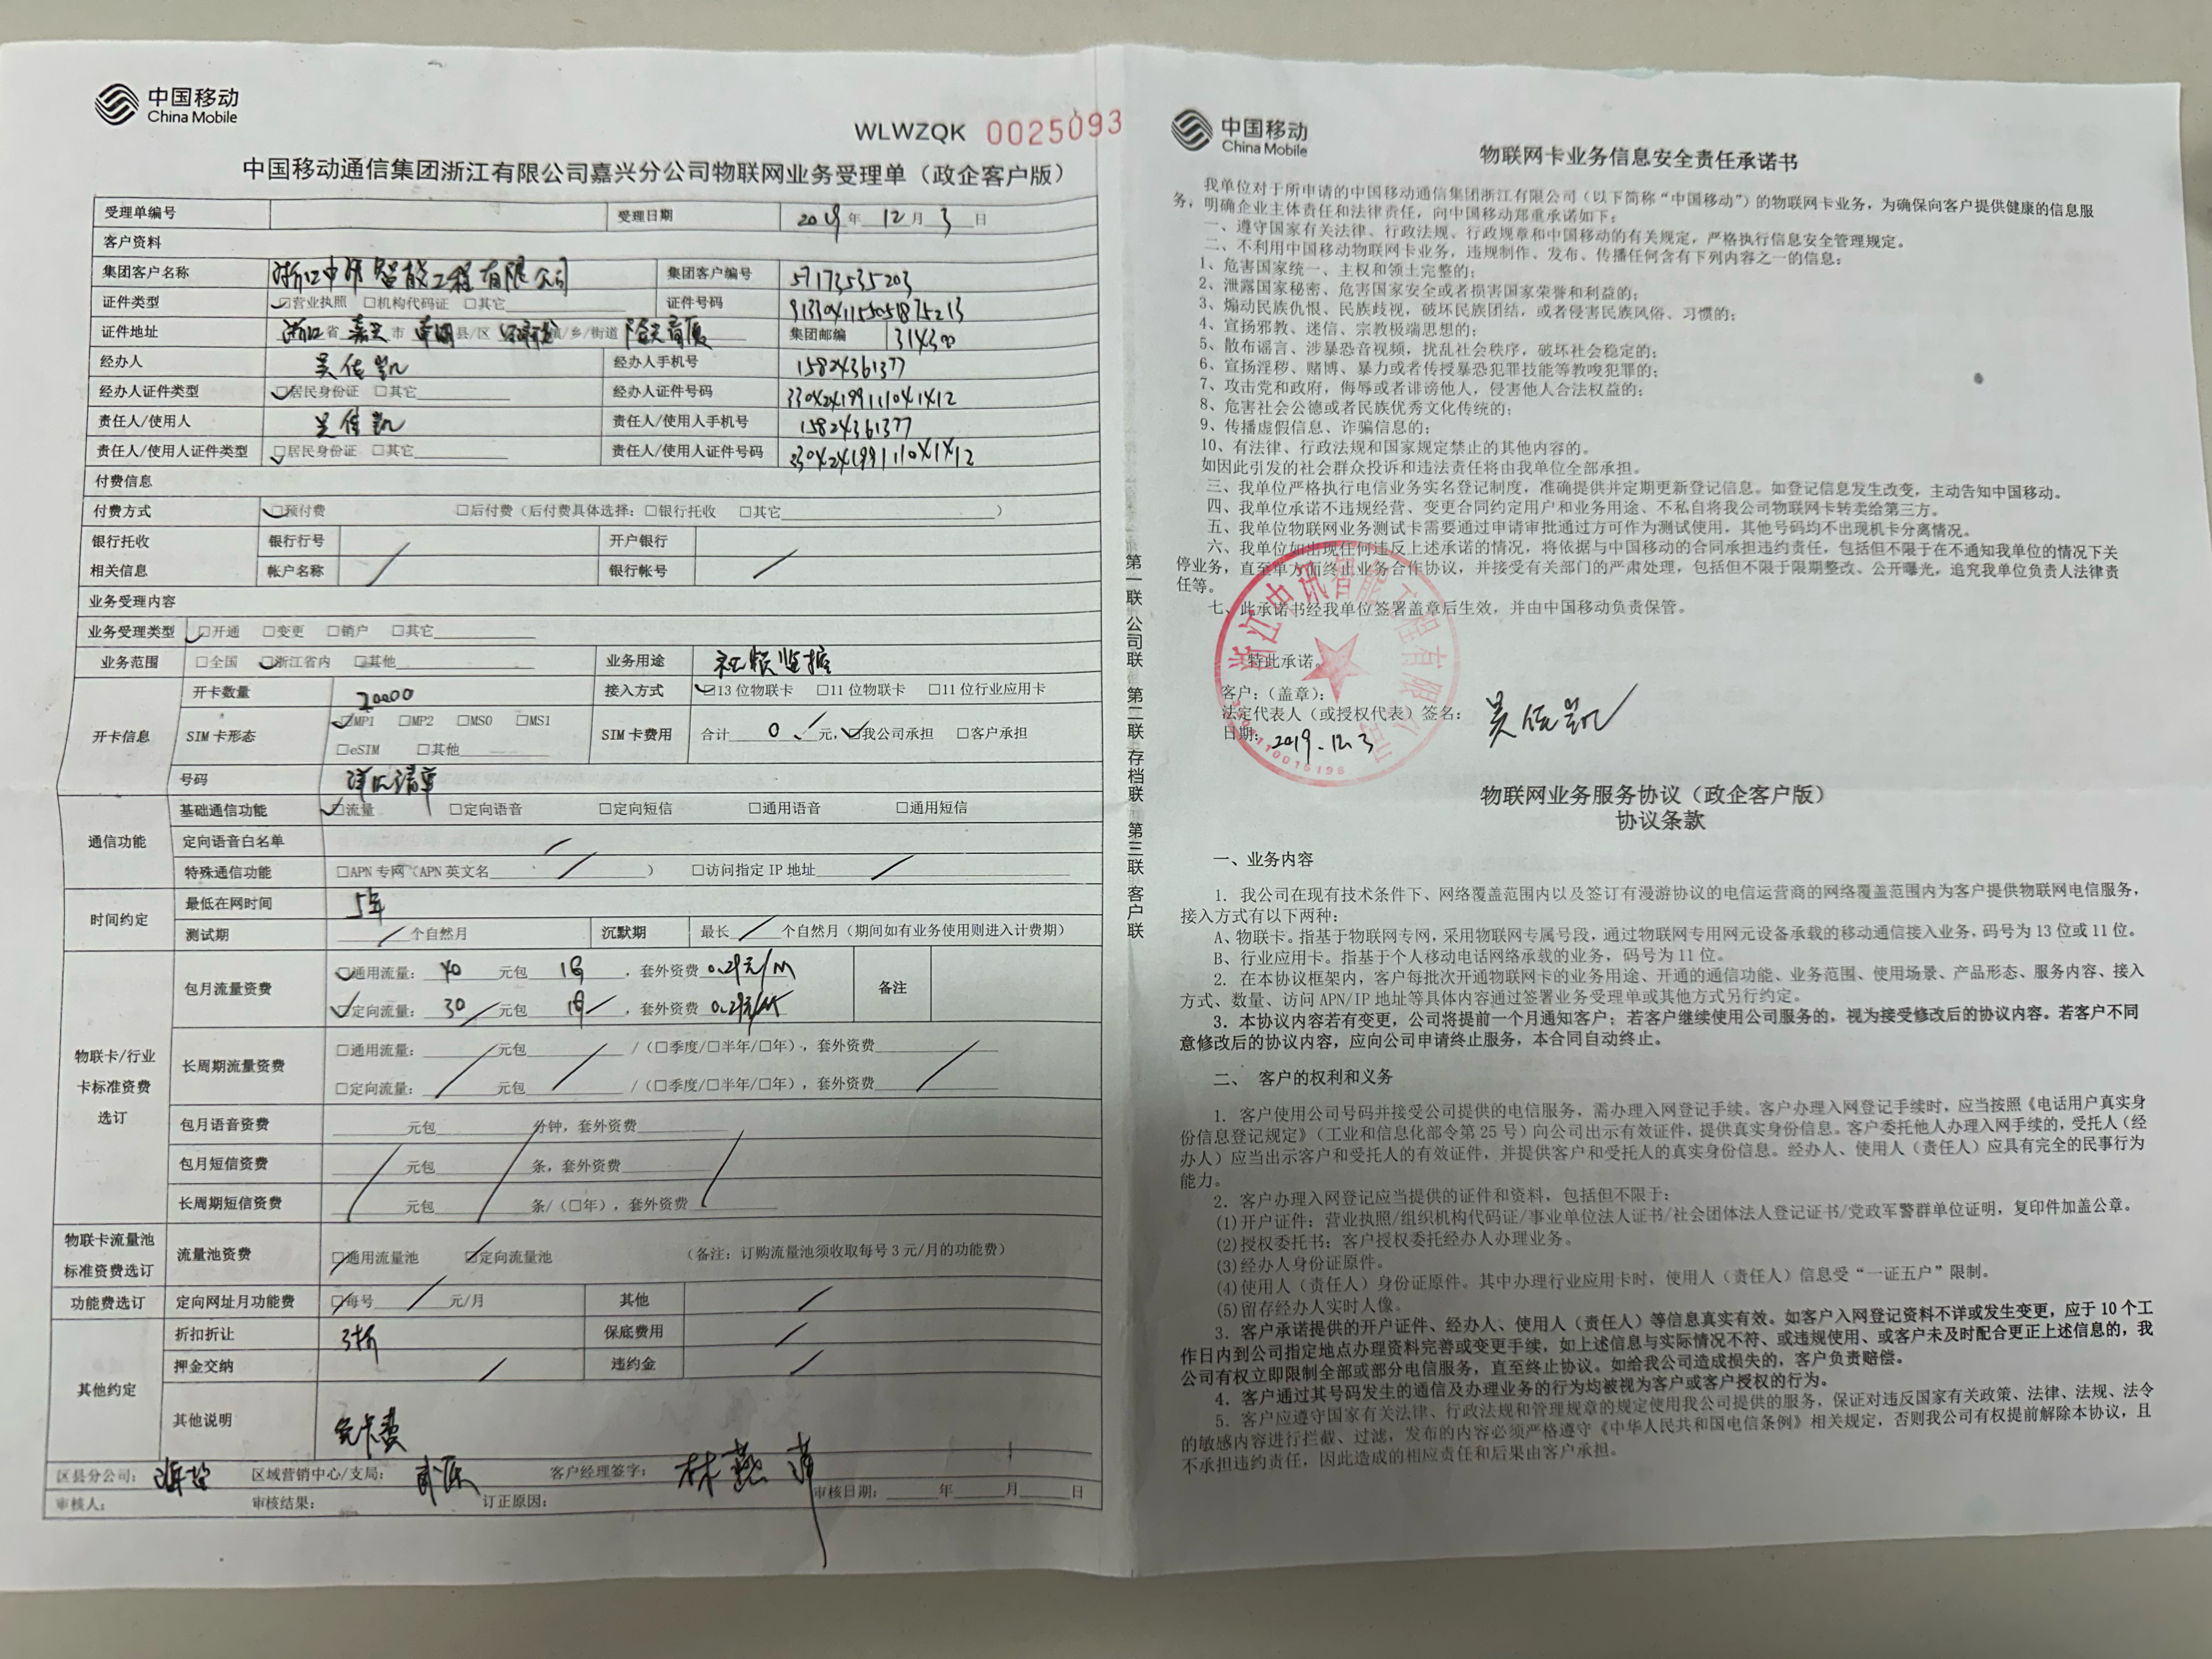 中国移动
China Mobile
WLWZQK 0025093
中国移动通信集团浙江有限公司嘉兴分公司物联网业务受理单（政企客户版）
受理单编号 受理日期 2019年 12月 3日
客户资料
集团客户名称 浙江中讯智能工程有限公司 集团客户编号 57173535203
证件类型 □营业执照 □机构代码证 □其它 证件号码
证件地址 浙江省 嘉兴市 县/区 镇/乡/街道 集团邮编 314300
经办人 吴佳凯 经办人手机号 15824361377
经办人证件类型 □居民身份证 □其它 经办人证件号码 330424199111041412
责任人/使用人 吴佳凯 责任人/使用人手机号 15824361377
责任人/使用人证件类型 □居民身份证 □其它 责任人/使用人证件号码 330424199111041412
付费信息
付费方式 □预付费 □后付费（后付费具体选择：□银行托收 □其它 ）
银行托收 银行行号 开户银行
相关信息 帐户名称 银行帐号
业务受理内容
业务受理类型 □开通 □变更 □销户 □其它
业务范围 □全国 □浙江省内 □其他 业务用途 视频监控
开卡信息 开卡数量 20000 接入方式 □13 位物联卡 □11 位物联卡 □11 位行业应用卡
SIM 卡形态 □MP1 □MP2 □MS0 □MS1
□eSIM □其他 SIM 卡费用 合计 0 元，□我公司承担 □客户承担
号码 详见清单
通信功能 基础通信功能 □流量 □定向语音 □定向短信 □通用语音 □通用短信
定向语音白名单
特殊通信功能 □APN 专网（APN 英文名 ） □访问指定 IP 地址
时间约定 最低在网时间 5年
测试期 个自然月 沉默期 最长 个自然月（期间如有业务使用则进入计费期）
物联卡/行业卡标准资费选订
包月流量资费 □通用流量： 40 元包 1G ，套外资费 0.29元/M 备注
□定向流量： 30 元包 1G ，套外资费 0.29元/M
长周期流量资费 □通用流量： 元包 /（□季度/□半年/□年），套外资费
□定向流量： 元包 /（□季度/□半年/□年），套外资费
包月语音资费 元包 分钟，套外资费
包月短信资费 元包 条，套外资费
长周期短信资费 元包 条/（□年），套外资费
物联卡流量池标准资费选订 流量池资费 □通用流量池 □定向流量池 （备注：订购流量池须收取每号 3 元/月的功能费）
功能费选订 定向网址月功能费 □每号 元/月 其他
其他约定 折扣折让 3折 保底费用
押金交纳 违约金
其他说明 免卡费
区县分公司： 海盐 区域营销中心/支局： 武原 客户经理签字： 林燕萍
审核人： 审核结果： 订正原因： 审核日期： 年 月 日
第一联 公司联 第二联 存档联 第三联 客户联
中国移动
China Mobile
物联网卡业务信息安全责任承诺书
我单位对于所申请的中国移动通信集团浙江有限公司（以下简称“中国移动”）的物联网卡业务，为确保向客户提供健康的信息服
务，明确企业主体责任和法律责任，向中国移动郑重承诺如下：
一、遵守国家有关法律、行政法规、行政规章和中国移动的有关规定，严格执行信息安全管理规定。
二、不利用中国移动物联网卡业务，违规制作、发布、传播任何含有下列内容之一的信息：
1、危害国家统一、主权和领土完整的；
2、泄露国家秘密、危害国家安全或者损害国家荣誉和利益的；
3、煽动民族仇恨、民族歧视，破坏民族团结，或者侵害民族风俗、习惯的；
4、宣扬邪教、迷信、宗教极端思想的；
5、散布谣言、涉暴恐音视频，扰乱社会秩序，破坏社会稳定的；
6、宣扬淫秽、赌博、暴力或者传授暴恐犯罪技能等教唆犯罪的；
7、攻击党和政府，侮辱或者诽谤他人，侵害他人合法权益的；
8、危害社会公德或者民族优秀文化传统的；
9、传播虚假信息、诈骗信息的；
10、有法律、行政法规和国家规定禁止的其他内容的。
如因此引发的社会群众投诉和违法责任将由我单位全部承担。
三、我单位严格执行电信业务实名登记制度，准确提供并定期更新登记信息。如登记信息发生改变，主动告知中国移动。
四、我单位承诺不违规经营、变更合同约定用户和业务用途、不私自将我公司物联网卡转卖给第三方。
五、我单位物联网业务测试卡需要通过申请审批通过方可作为测试使用，其他号码均不出现机卡分离情况。
六、我单位如出现任何违反上述承诺的情况，将依据与中国移动的合同承担违约责任，包括但不限于在不通知我单位的情况下关
停业务，直至单方面终止业务合作协议，并接受有关部门的严肃处理，包括但不限于限期整改、公开曝光，追究我单位负责人法律责
任等。
七、此承诺书经我单位签署盖章后生效，并由中国移动负责保管。
特此承诺。
客户：（盖章）：
法定代表人（或授权代表）签名： 吴佳凯
日期： 2019.12.3
浙江中讯智能工程有限公司
物联网业务服务协议（政企客户版）
协议条款
一、业务内容
1. 我公司在现有技术条件下、网络覆盖范围内以及签订有漫游协议的电信运营商的网络覆盖范围内为客户提供物联网电信服务，
接入方式有以下两种：
A、物联卡。指基于物联网专网，采用物联网专属号段，通过物联网专用网元设备承载的移动通信接入业务，码号为 13 位或 11 位。
B、行业应用卡。指基于个人移动电话网络承载的业务，码号为 11 位。
2. 在本协议框架内，客户每批次开通物联网卡的业务用途、开通的通信功能、业务范围、使用场景、产品形态、服务内容、接入
方式、数量、访问 APN/IP 地址等具体内容通过签署业务受理单或其他方式另行约定。
3. 本协议内容若有变更，公司将提前一个月通知客户；若客户继续使用公司服务的，视为接受修改后的协议内容。若客户不同
意修改后的协议内容，应向公司申请终止服务，本合同自动终止。
二、 客户的权利和义务
1. 客户使用公司号码并接受公司提供的电信服务，需办理入网登记手续。客户办理入网登记手续时，应当按照《电话用户真实身
份信息登记规定》（工业和信息化部令第 25 号）向公司出示有效证件，提供真实身份信息。客户委托他人办理入网手续的，受托人（经
办人）应当出示客户和受托人的有效证件，并提供客户和受托人的真实身份信息。经办人、使用人（责任人）应具有完全的民事行为
能力。
2. 客户办理入网登记应当提供的证件和资料，包括但不限于：
(1)开户证件：营业执照/组织机构代码证/事业单位法人证书/社会团体法人登记证书/党政军警群单位证明，复印件加盖公章。
(2)授权委托书：客户授权委托经办人办理业务。
(3)经办人身份证原件。
(4)使用人（责任人）身份证原件。其中办理行业应用卡时，使用人（责任人）信息受“一证五户”限制。
(5)留存经办人实时人像。
3. 客户承诺提供的开户证件、经办人、使用人（责任人）等信息真实有效。如客户入网登记资料不详或发生变更，应于 10 个工
作日内到公司指定地点办理资料完善或变更手续，如上述信息与实际情况不符、或违规使用、或客户未及时配合更正上述信息的，我
公司有权立即限制全部或部分电信服务，直至终止协议。如给我公司造成损失的，客户负责赔偿。
4. 客户通过其号码发生的通信及办理业务的行为均被视为客户或客户授权的行为。
5. 客户应遵守国家有关法律、行政法规和管理规章的规定使用我公司提供的服务，保证对违反国家有关政策、法律、法规、法令
的敏感内容进行拦截、过滤，发布的内容必须严格遵守《中华人民共和国电信条例》相关规定，否则我公司有权提前解除本协议，且
不承担违约责任，因此造成的相应责任和后果由客户承担。